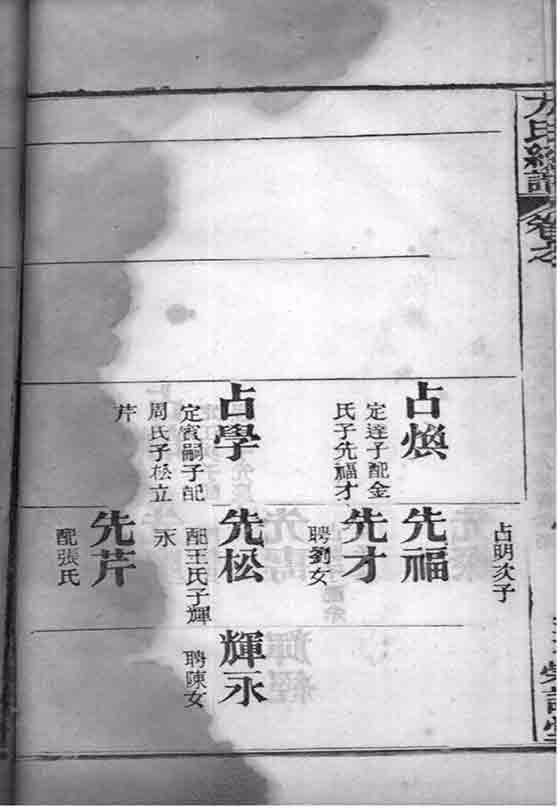 方氏総譜
卷之
占明次子
占煥
定達子配金
氏子先福才
先福
先才
聘劉女
占學
定賓嗣子配
周氏子松立
芹
先松
配王氏子輝
永
先芹
配張氏
輝永
聘陳女